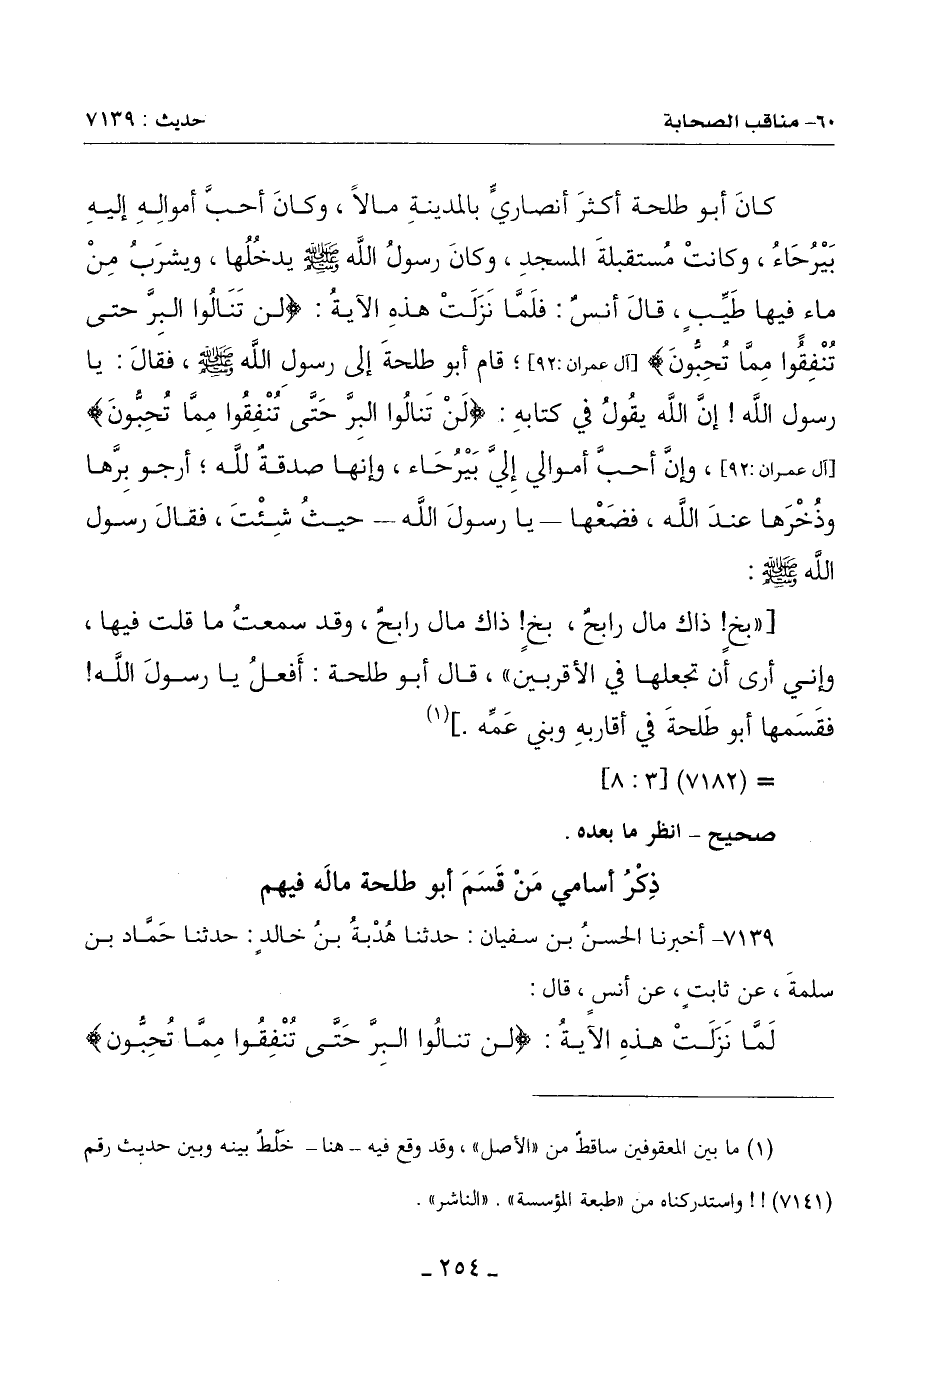 ٦٠- مناقب الصحابة حديث : ٧١٣٩
كانَ أبو طلحة أكثرَ أنصاريٍّ بالمدينةِ مالاً ، وكانَ أحبَّ أموالِهِ إليهِ
بَيْرُحَاءُ ، وكانتْ مُستقبلةَ المسجدِ ، وكانَ رسولُ اللَّه ﷺ يدخُلُها ، ويشرَبُ مِنْ
ماء فيها طَيِّبٍ ، قالَ أنسٌ : فلَمَّا نزَلَتْ هذهِ الآيةُ : ﴿لن تَنَالُوا البِرَّ حتى
تُنْفِقُوا مِمَّا تُحِبُّونَ﴾ [آل عمران :٩٢] ؛ قام أبو طلحةَ إلى رسول اللَّه ﷺ ، فقالَ : يا
رسول اللَّه ! إنَّ اللَّه يقولُ في كتابهِ : ﴿لَنْ تَنالُوا البِرَّ حَتَّى تُنْفِقُوا مِمَّا تُحِبُّونَ﴾
[آل عمران :٩٢] ، وإنَّ أحبَّ أموالي إليَّ بَيْرُحَاء ، وإنها صدقةٌ للَّه ؛ أرجو برَّها
وذُخْرَها عندَ اللَّه ، فضَعْها – يا رسولَ اللَّه – حيثُ شئْتَ ، فقالَ رسول
اللَّه ﷺ :
[«بخٍ! ذاكَ مال رابحٌ ، بخٍ! ذاكَ مال رابحٌ ، وقد سمعتُ ما قلت فيها ،
وإني أرى أن تجعلها في الأقربين» ، قال أبو طلحة : أَفعلُ يا رسولَ اللَّه!
فقَسَمها أبو طَلحةَ في أقاربهِ وبني عَمِّه .](١)
= (٧١٨٢) [٣ : ٨]
صحيح - انظر ما بعده .
ذِكْرُ أسامي مَنْ قَسَمَ أبو طلحة مالَه فيهم
٧١٣٩- أخبرنا الحسنُ بن سفيان : حدثنا هُدْبةُ بنُ خالدٍ : حدثنا حَمَّاد بن
سلمةَ ، عن ثابتٍ ، عن أنسٍ ، قال :
لَمَّا نزَلَتْ هذهِ الآيةُ : ﴿لن تنالُوا البِرَّ حَتَّى تُنْفِقُوا مِمَّا تُحِبُّون﴾
(١) ما بين المعقوفين ساقطٌ من «الأصل» ، وقد وقع فيه - هنا - خَلْطٌ بينه وبين حديث رقم
(٧١٤١) !! واستدركناه من «طبعة المؤسسة» . «الناشر» .
- ٢٥٤ -